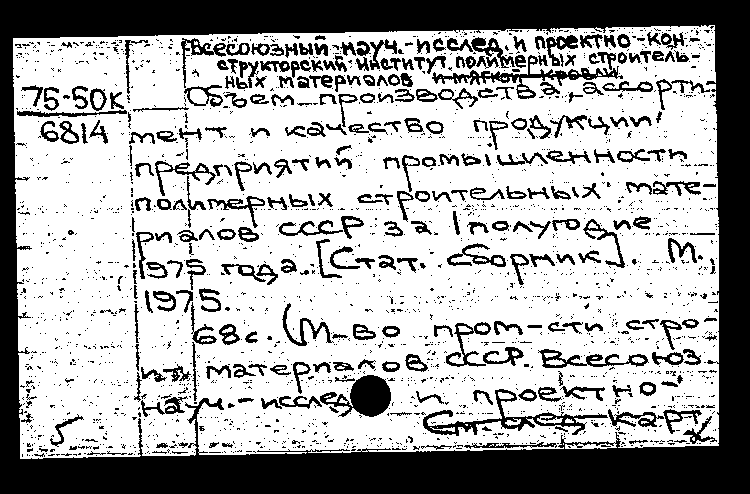 Всесоюзный науч.-исслед. и проектно-кон-
структорский институт полимерных строитель-
ных материалов и мягкой кровли.
75-50к Объем производства, ассорти-
6814 мент и качество продукции
предприятий промышленности
полимерных строительных мате-
риалов СССР за 1 полугодие
1975 года. [Стат. сборник]. М.,
1975.
68с. (М-во пром-сти стро-
ит. материалов СССР. Всесоюз.
науч.-исслед. и проектно-
5 См. след. карт